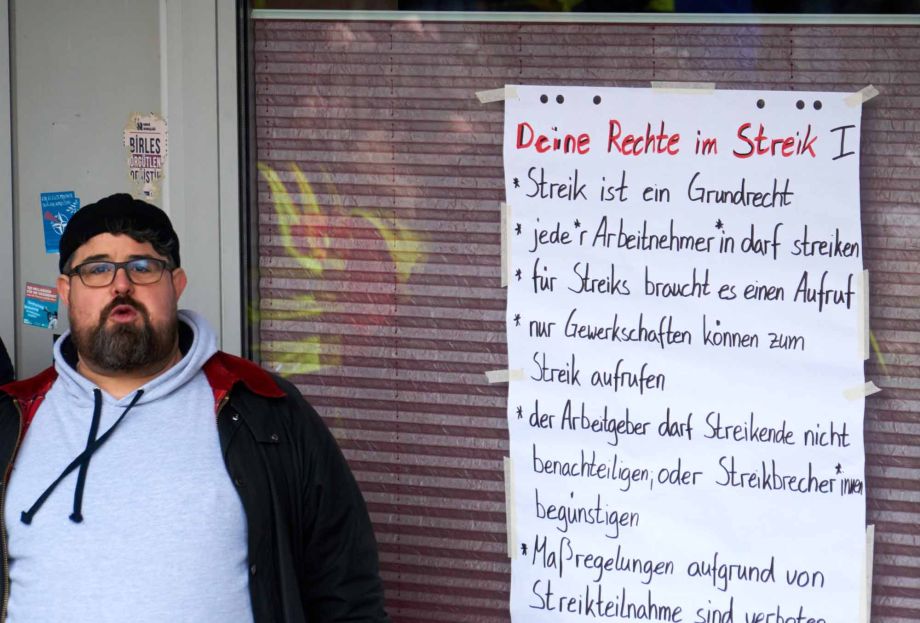 BIRLES
ÖRGÜTLEN
Deine Rechte im Streik I
* Streik ist ein Grundrecht
* jede*r Arbeitnehmer*in darf streiken
* für Streiks braucht es einen Aufruf
* nur Gewerkschaften können zum
Streik aufrufen
* der Arbeitgeber darf Streikende nicht
benachteiligen, oder Streikbrecher*innen
begünstigen
* Maßregelungen aufgrund von
Streikteilnahme sind verboten